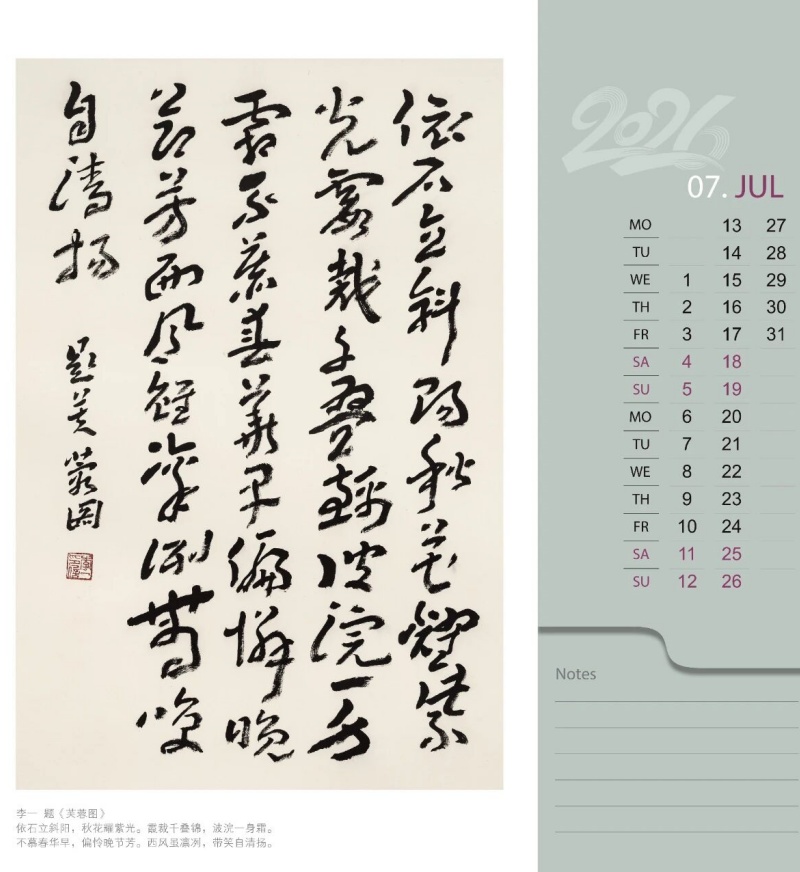 依石立斜陽秋花耀紫
光霞裁千疊錦波浣一身
霜不慕春華早偏憐晚
節芳西風雖凛冽帶笑
自清揚
題芙蓉图
李一 题《芙蓉图》
依石立斜阳，秋花耀紫光。霞裁千叠锦，波浣一身霜。
不慕春华早，偏怜晚节芳。西风虽凛冽，带笑自清扬。
2026
07. JUL
MO 13 27
TU 14 28
WE 1 15 29
TH 2 16 30
FR 3 17 31
SA 4 18
SU 5 19
MO 6 20
TU 7 21
WE 8 22
TH 9 23
FR 10 24
SA 11 25
SU 12 26
Notes